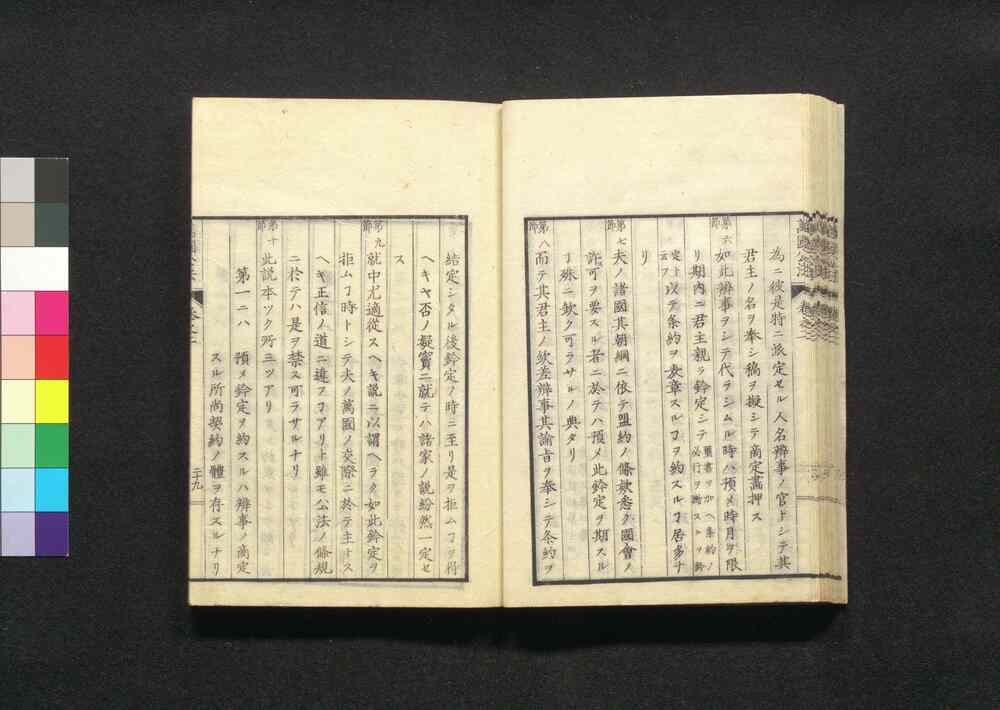 為ニ彼是特ニ派定セル人名辨事ノ官トシテ其
君主ノ名ヲ奉シ稿ヲ擬シテ商定畫押ス
第六節
如此辨事ヲシテ代ラシムル時ハ預メ時月ヲ限
リ期内ニ君主親ラ鈐定シテ璽書ヲ加ヘ条約ノ必行ヲ断スルヲ鈐
定ト云フ以テ条約ヲ表章スルヿヲ約スルヿ居多ナ
リ
第七節
夫ノ諸國其朝綱ニ依テ盟約ノ條欵悉ク國會ノ
許可ヲ要スル者ニ於テハ預メ此鈐定ヲ期スル
丁殊ニ欽ク可ラサルノ典タリ
第八節
而テ其君主ノ欽差辨事其諭旨ヲ奉シテ条約ヲ
結定シタル後鈐定ノ時ニ至リ是ヲ拒ムヿヲ得
ヘキヤ否ノ疑竇ニ就テハ諸家ノ説紛然一定セ
ス
第九節
就中尤適從スヘキ説ニ以謂ヘラク如此鈐定ヲ
拒ムヿ時トシテ夫ノ萬國ノ交際ニ於テ主トス
ヘキ正信ノ道ニ違フヿアリト雖モ公法ノ條規
ニ於テハ是ヲ禁ス可ラサルナリ
第十節
此説本ツク所三ツアリ
第一ニハ
預メ鈐定ヲ約スルハ辨事ノ商定
スル所尚契約ノ體ヲ存スルナリ
二十九